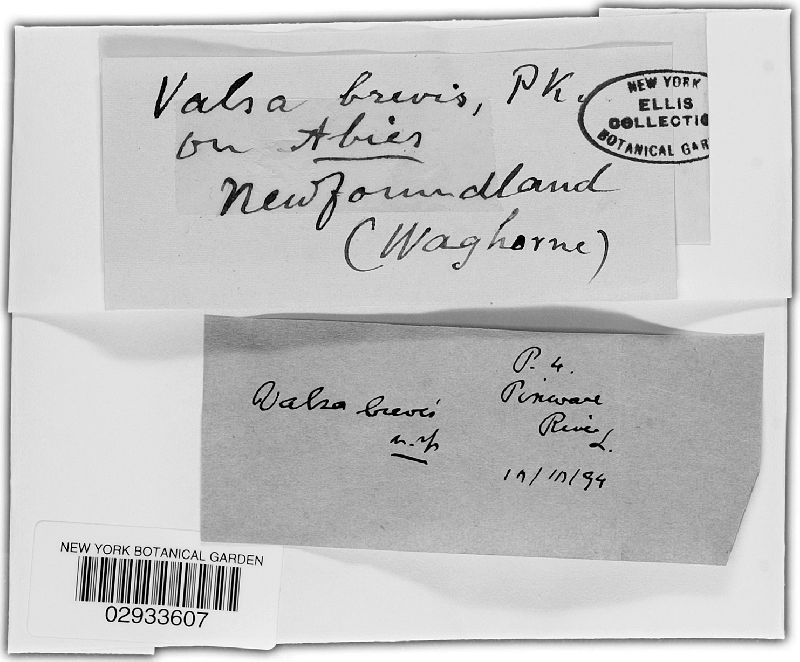 Valsa brevis, PK.
on Abies
Newfoundland
(Waghorne)
NEW YORK
ELLIS
COLLECTIO
BOTANICAL GAR
Valsa brevis
n. sp
P. 4.
Pinware
River
L.
10/10/94
NEW YORK BOTANICAL GARDEN
02933607